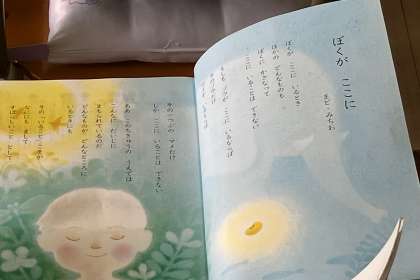 ぼくが ここに
まど・みちお
ぼくが ここに いるとき
ほかの どんなものも
ぼくに かさなって
ここに いることは できない
もしも ゾウが ここに いるならば
そのゾウだけ
マメが いるならば
その一つぶの マメだけ
しか ここに いることは できない
ああ このちきゅうの うえでは
こんなに だいじに
まもられているのだ
どんなものが どんなところに
いるときにも
その「いること」こそが
なににも まして
すばらしいこと として